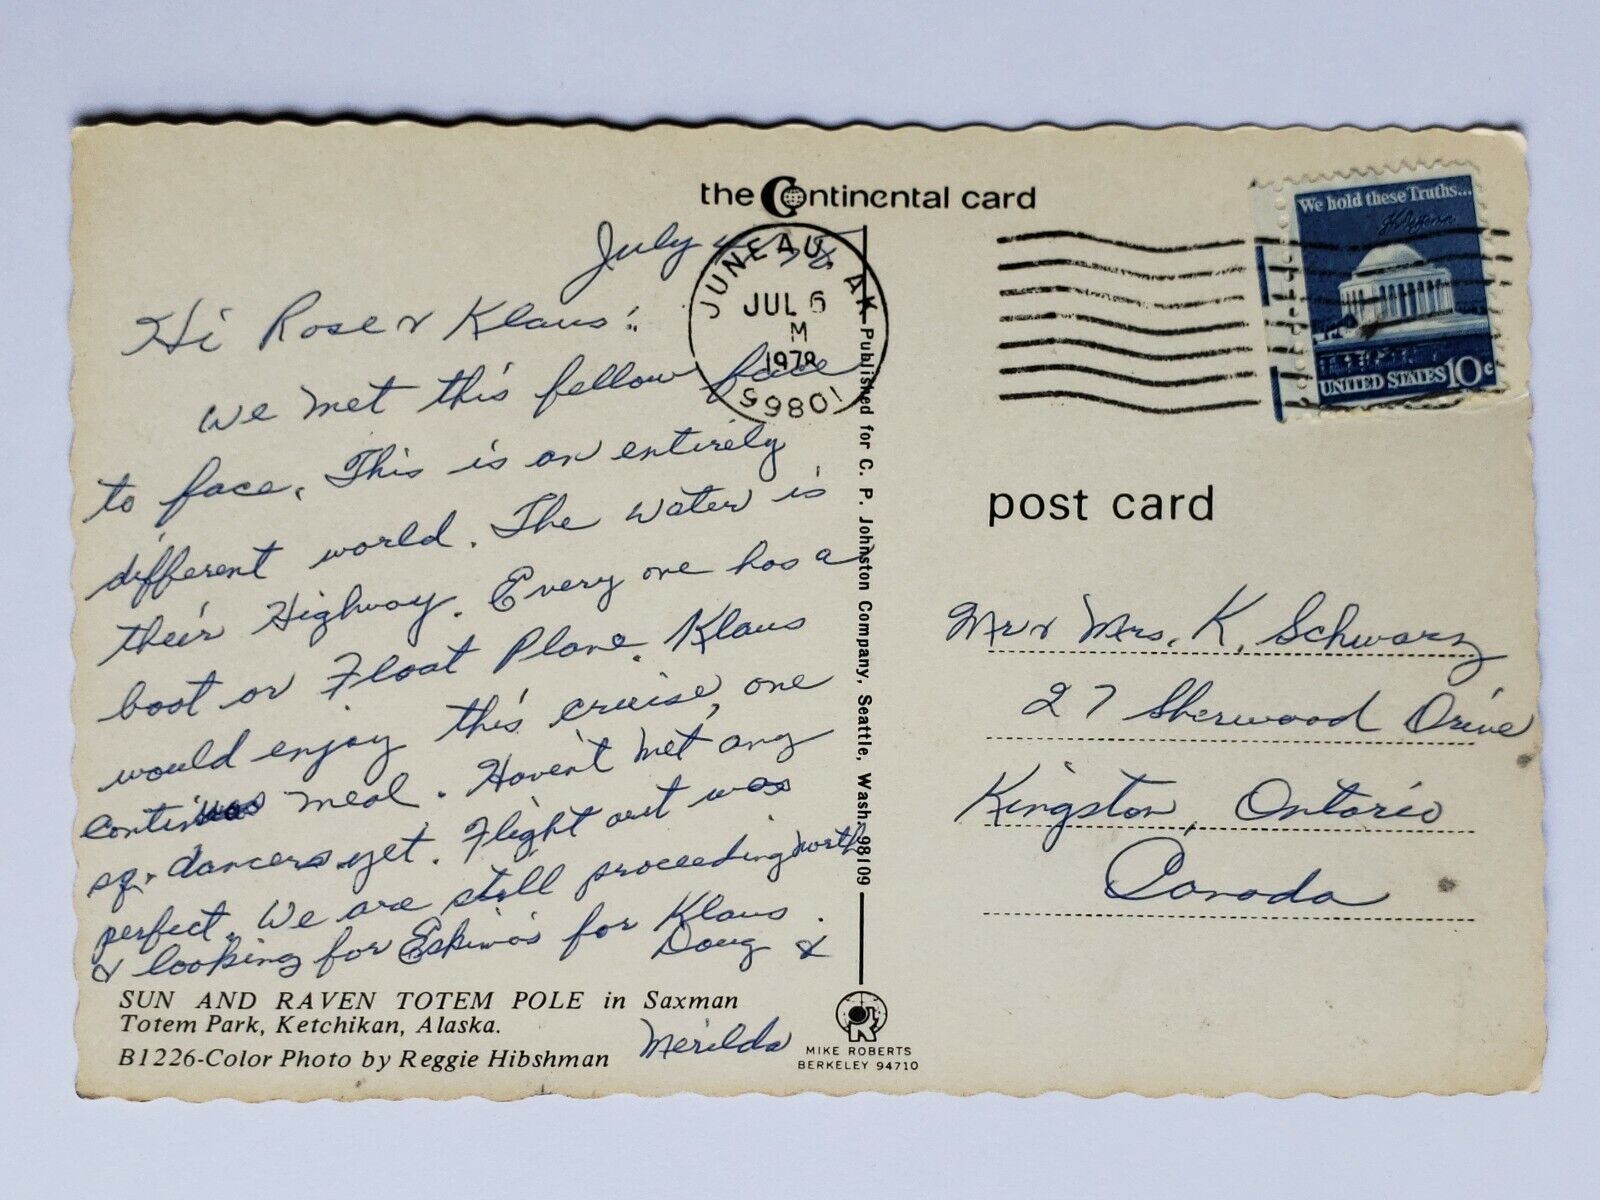 the Continental card
July 4
Hi Rose & Klaus:
We met this fellow face
to face. This is an entirely
different world. The water is
their Highway. Every one has a
boat or Float Plane. Klaus
would enjoy this cruise, one
meal. Haven't met any
sq. dancers yet. Flight out was
perfect. We are still proceeding north
& looking for Eskimo's for Klaus.
Doug &
Merilda
SUN AND RAVEN TOTEM POLE in Saxman
Totem Park, Ketchikan, Alaska.
B1226-Color Photo by Reggie Hibshman
JUNEAU, AK
JUL 6
M
1978
99801
Published for C. P. Johnston Company, Seattle, Wash. 98109
MIKE ROBERTS
BERKELEY 94710
We hold these Truths...
UNITED STATES 10c
post card
Mr & Mrs. K. Schwarz
27 Sherwood Drive
Kingston, Ontario
Canada